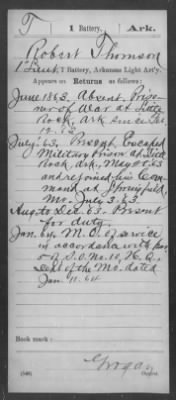 T | 1 Battery, | Ark.
Robert Thomson
1" Lieut, 1 Battery, Arkansas Light Art'y.
Appears on
Returns as follows:
June 1863. Absent. Priso-
ner of War at Little
Rock, Ark since
July '63. Present. Escaped
Military Prison at Little
Rock, Ark, May
and rejoined his Com-
mand at Springfield,
Mo. July 3. 63
Aug. to Dec 63. Present
for duty.
Jan. 64. M.O. of service
in accordance with par.
5 S.O. No. 10, H.Q.
Dept of the Mo. dated
Jan 11. 64
Book mark:
(546)
Copyist.